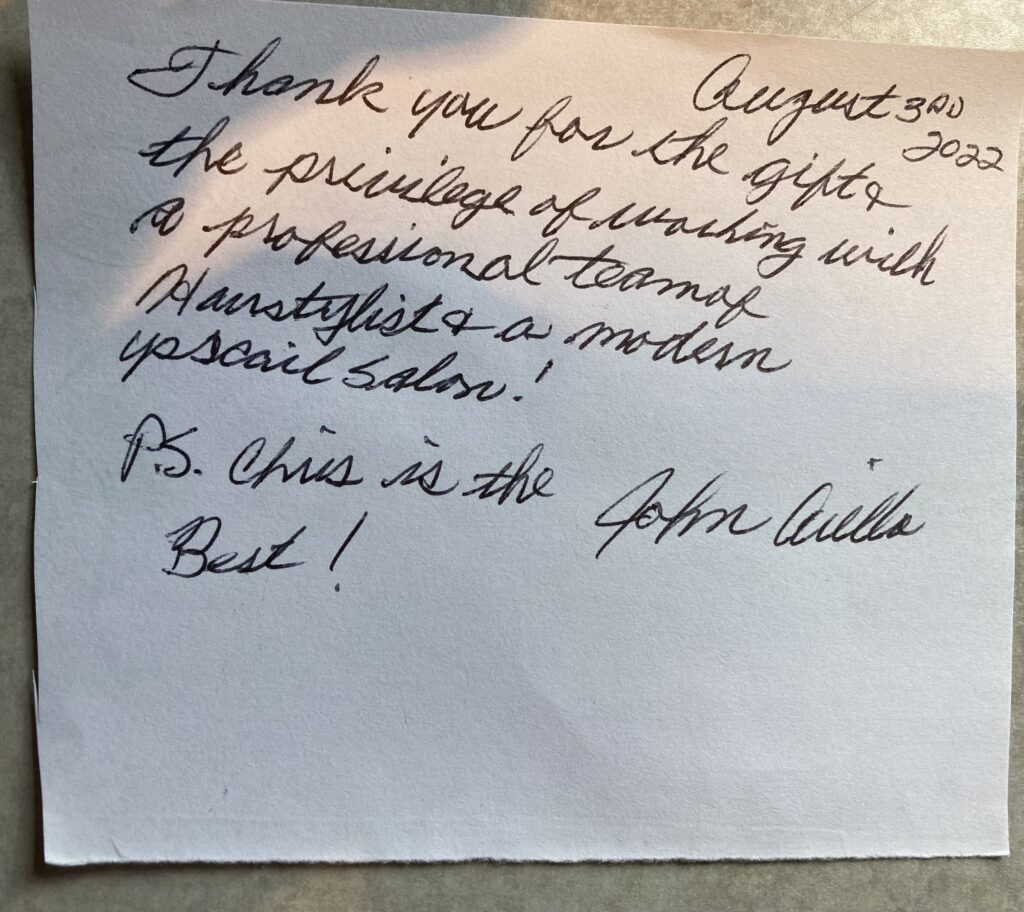 August 3RD
2022
Thank you for the gift &
the privilege of working with
a professional team of
Hairstylist & a modern
upscail Salon!
P.S. Chris is the
Best!
John